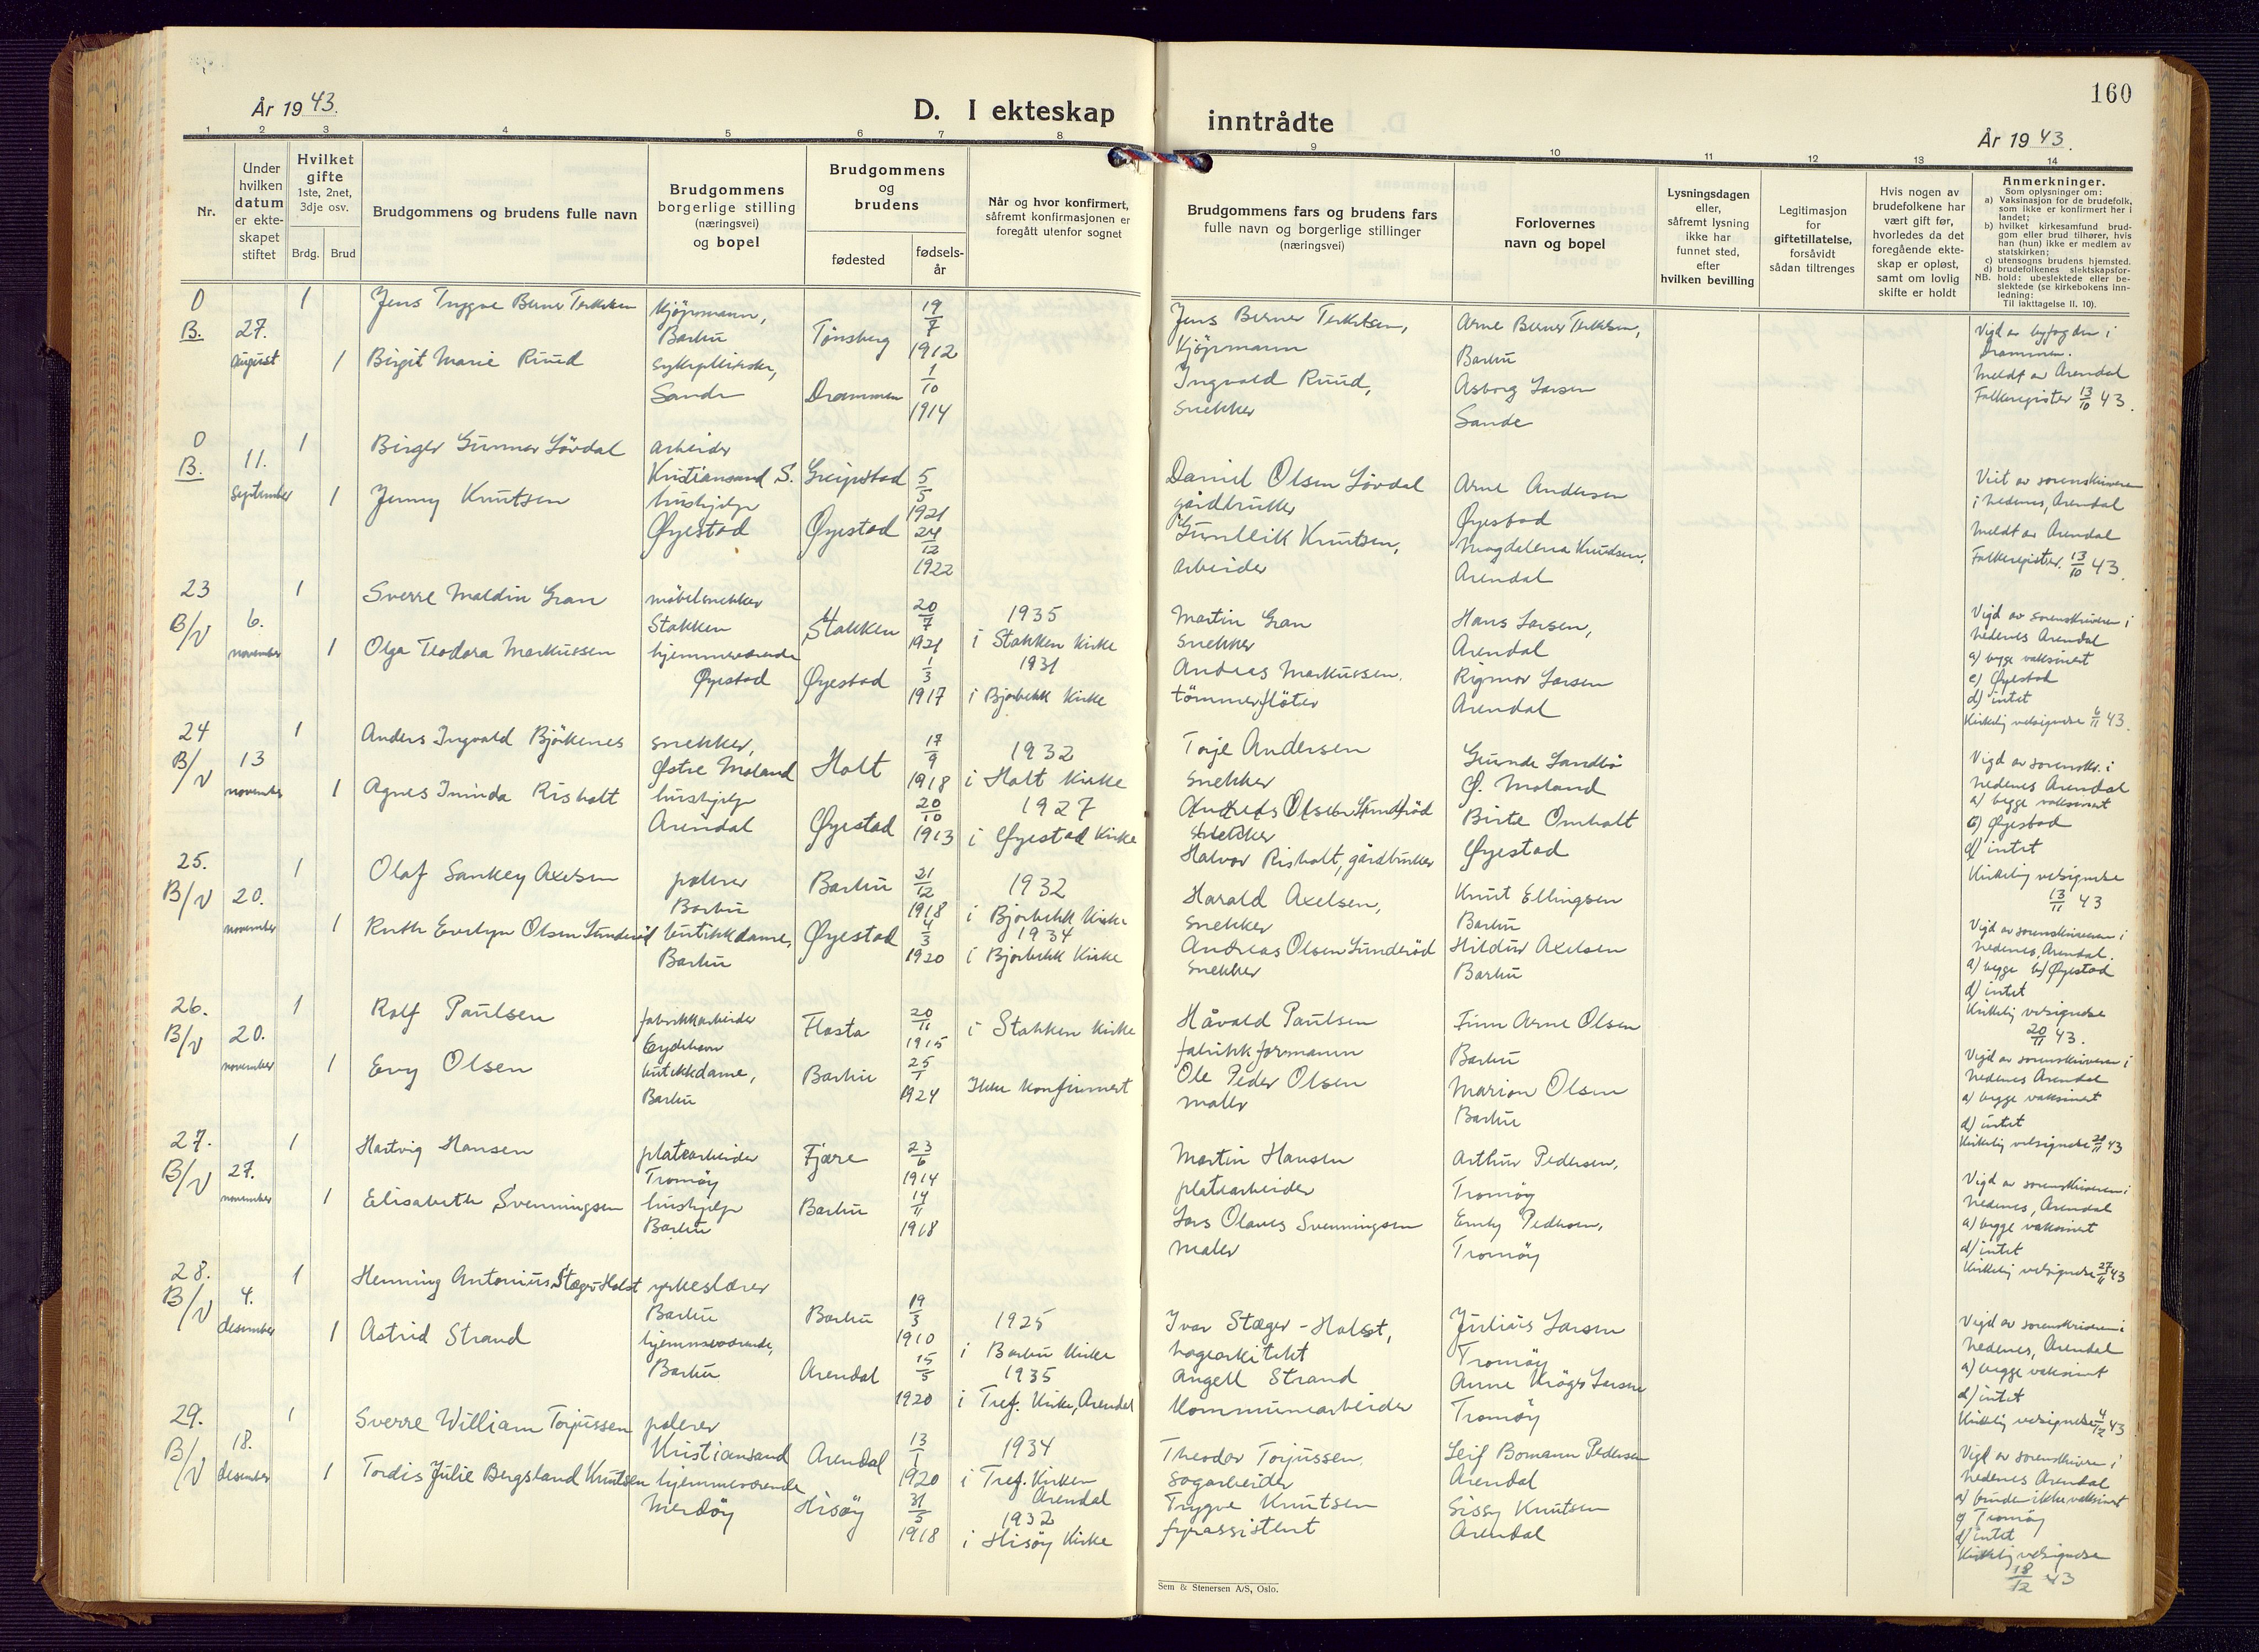 160
År 1943.
D. I ekteskap inntrådte
År 1943.
1 2 3 4 5 6 7 8 9 10 11 12 13 14
Nr.
Under hvilken datum er ekteskapet stiftet
Hvilket gifte
1ste, 2net, 3dje osv.
Brdg. Brud
Brudgommens og brudens fulle navn
Brudgommens borgerlige stilling (næringsvei) og bopel
Brudgommens og brudens
fødested
fødselsår
Når og hvor konfirmert, såfremt konfirmasjonen er foregått utenfor sognet
Brudgommens fars og brudens fars fulle navn og borgerlige stillinger (næringsvei)
Forlovernes navn og bopel
Lysningsdagen eller, såfremt lysning ikke har funnet sted, efter hvilken bevilling
Legitimasjon for giftetillatelse, forsåvidt sådan tiltrenges
Hvis nogen av brudefolkene har vært gift før, hvorledes da det foregående ekteskap er opløst, samt om lovlig skifte er holdt
Anmerkninger.
Som oplysninger om:
a) Vaksinasjon for de brudefolk, som ikke er konfirmert her i landet;
b) hvilket kirkesamfund brudgom eller brud tilhører, hvis han (hun) ikke er medlem av statskirken;
c) utensogns brudens hjemsted.
d) brudefolkenes slektskapsforhold: ubeslektede eller beslektede (se kirkebokens innledning:
NB. Til iakttagelse II, 10).
0 B. 27. august
1 Jens Trygve Berner Terkelsen kjøpmann, Barbu Tønsberg 19/7 1912
1 Birgit Marie Ruud sykepleierske, Sande Drammen 1/10 1914
Jens Berner Terkelsen, kjøpmann
Ingvald Ruud, snekker
Arne Berner Terkelsen, Barbu
Asborg Larsen Sande
Vigd av byfogden i Drammen.
Meldt av Arendal Folkeregister 13/10 43.
0 B. 11. september
1 Birger Gunnar Lövdal arbeider Kristiansand S. Greipstad 5/5 1921
1 Jenny Knutsen hushjelp Øyestad Øyestad 24/12 1922
Daniel Olsen Lövdal gårdbruker
Gunleik Knutsen, arbeider
Arne Andersen Øyestad
Magdalena Knudsen, Arendal
Viet av sorenskriveren i Nedenes, Arendal
Meldt av Arendal Folkeregister. 13/10 43.
23 B/V 6. november
1 Sverre Maldin Gran møbelsnekker Stokken Stokken 20/7 1921 1935 i Stokken kirke
1 Olga Teodora Markussen hjemmeværende Øyestad Øyestad 1/3 1917 1931 i Bjorbekk kirke
Martin Gran snekker
Andreas Markussen. tømmerfløter
Hans Larsen, Arendal
Rigmor Larsen Arendal
Vigd av sorenskriveren i Nedenes Arendal
a) begge vaksinert
c) Øyestad
d) intet
Kirkelig velsignelse 6/11 43.
24 B/V 13 november
1 Anders Ingvald Bjørkenes snekker, Østre Moland Holt 17/9 1918 1932 i Holt kirke
1 Agnes Ininda Risholt hushjelp Arendal Øyestad 20/10 1913 1927 i Øyestad kirke
Torje Andersen snekker
Andreas Olsen Sunderød snekker
Halvor Risholt, gårdbruker
Gunde Sandbø Ø. Moland
Birte Omholt Øyestad
Vigd av sorenskr. i Nedenes Arendal
a) begge vaksinert
c) Øyestad
d) intet
Kirkelig velsignelse 13/11 43
25. B/V 20. november
1 Olaf Sankey Axelsen pølerer Barbu Barbu 21/12 1918 1932 i Bjorbekk kirke
1 Ruth Evelyn Olsen Sunderød butikkdame, Barbu Øyestad 4/3 1920 1934 i Bjorbekk kirke
Harald Axelsen, snekker
Andreas Olsen Sunderød snekker
Knut Ellingsen Barbu
Hildur Axelsen Barbu
Vigd av sorenskriveren i Nedenes, Arendal.
a) begge b) Øyestad
d) intet
Kirkelig velsignelse 20/11 43.
26. B/V 20. november
1 Rolf Paulsen fabrikkarbeider Eydehavn Flosta 20/11 1915 i Stokken kirke
1 Evy Olsen butikkdame, Barbu Barbu 25/1 1924 Ikke konfirmert
Håvald Paulsen fabrikkformann
Ole Peder Olsen maler
Finn Arne Olsen Barbu
Marion Olsen Barbu
Vigd av sorenskriveren i Nedenes Arendal
a) begge vaksinert
d) intet
Kirkelig velsignelse 20/11 43
27. B/V 27. november
1 Hartvig Hansen platearbeider Tromøy Fjære 23/6 1914
1 Elisabeth Svenningsen hushjelp Barbu Barbu 14/11 1918
Martin Hansen platearbeider
Lars Olaves Svenningsen maler
Arthur Pedersen, Tromøy
Emly Pedersen, Tromøy
Vigd av sorenskriveren i Nedenes, Arendal
a) begge vaksinert
d) intet
Kirkelig velsignelse 27/11 43
28. B/V 4. desember
1 Henning Antonius Stæger-Holst yrkeslærer Barbu Barbu 19/3 1910 1925 i Barbu kirke
1 Astrid Strand hjemmeværende, Barbu Arendal 15/5 1920 1935 i Tref. kirke, Arendal
Ivar Stæger-Holst, hagearkitekt
Angell Strand kommunearbeider
Julius Larsen Tromøy
Anne Krøger Larsen Tromøy
Vigd av sorenskriveren i Nedenes, Arendal
a) begge vaksinert
d) intet
Kirkelig velsignelse 4/12 43
29. B/V 18. desember
1 Sverre William Torjussen pølerer Kristiansand Arendal 13/1 1920 1934 i Tref. kirken Arendal
1 Tordis Julie Bergsland Knutsen hjemmeværende Merdøy Hisøy 31/5 1918 1932 i Hisøy kirke
Theodor Torjussen. sagarbeider
Trygve Knutsen fyrassistent
Leif Bomann Pedersen Arendal
Sissy Knutsen Arendal
Vigd av sorenskriveren i Nedenes Arendal
a) bruden ikke vaksinert
c) Tromøy
d) intet
Kirkelig velsignelse 18/12 43
Sem & Stenersen A/S, Oslo.